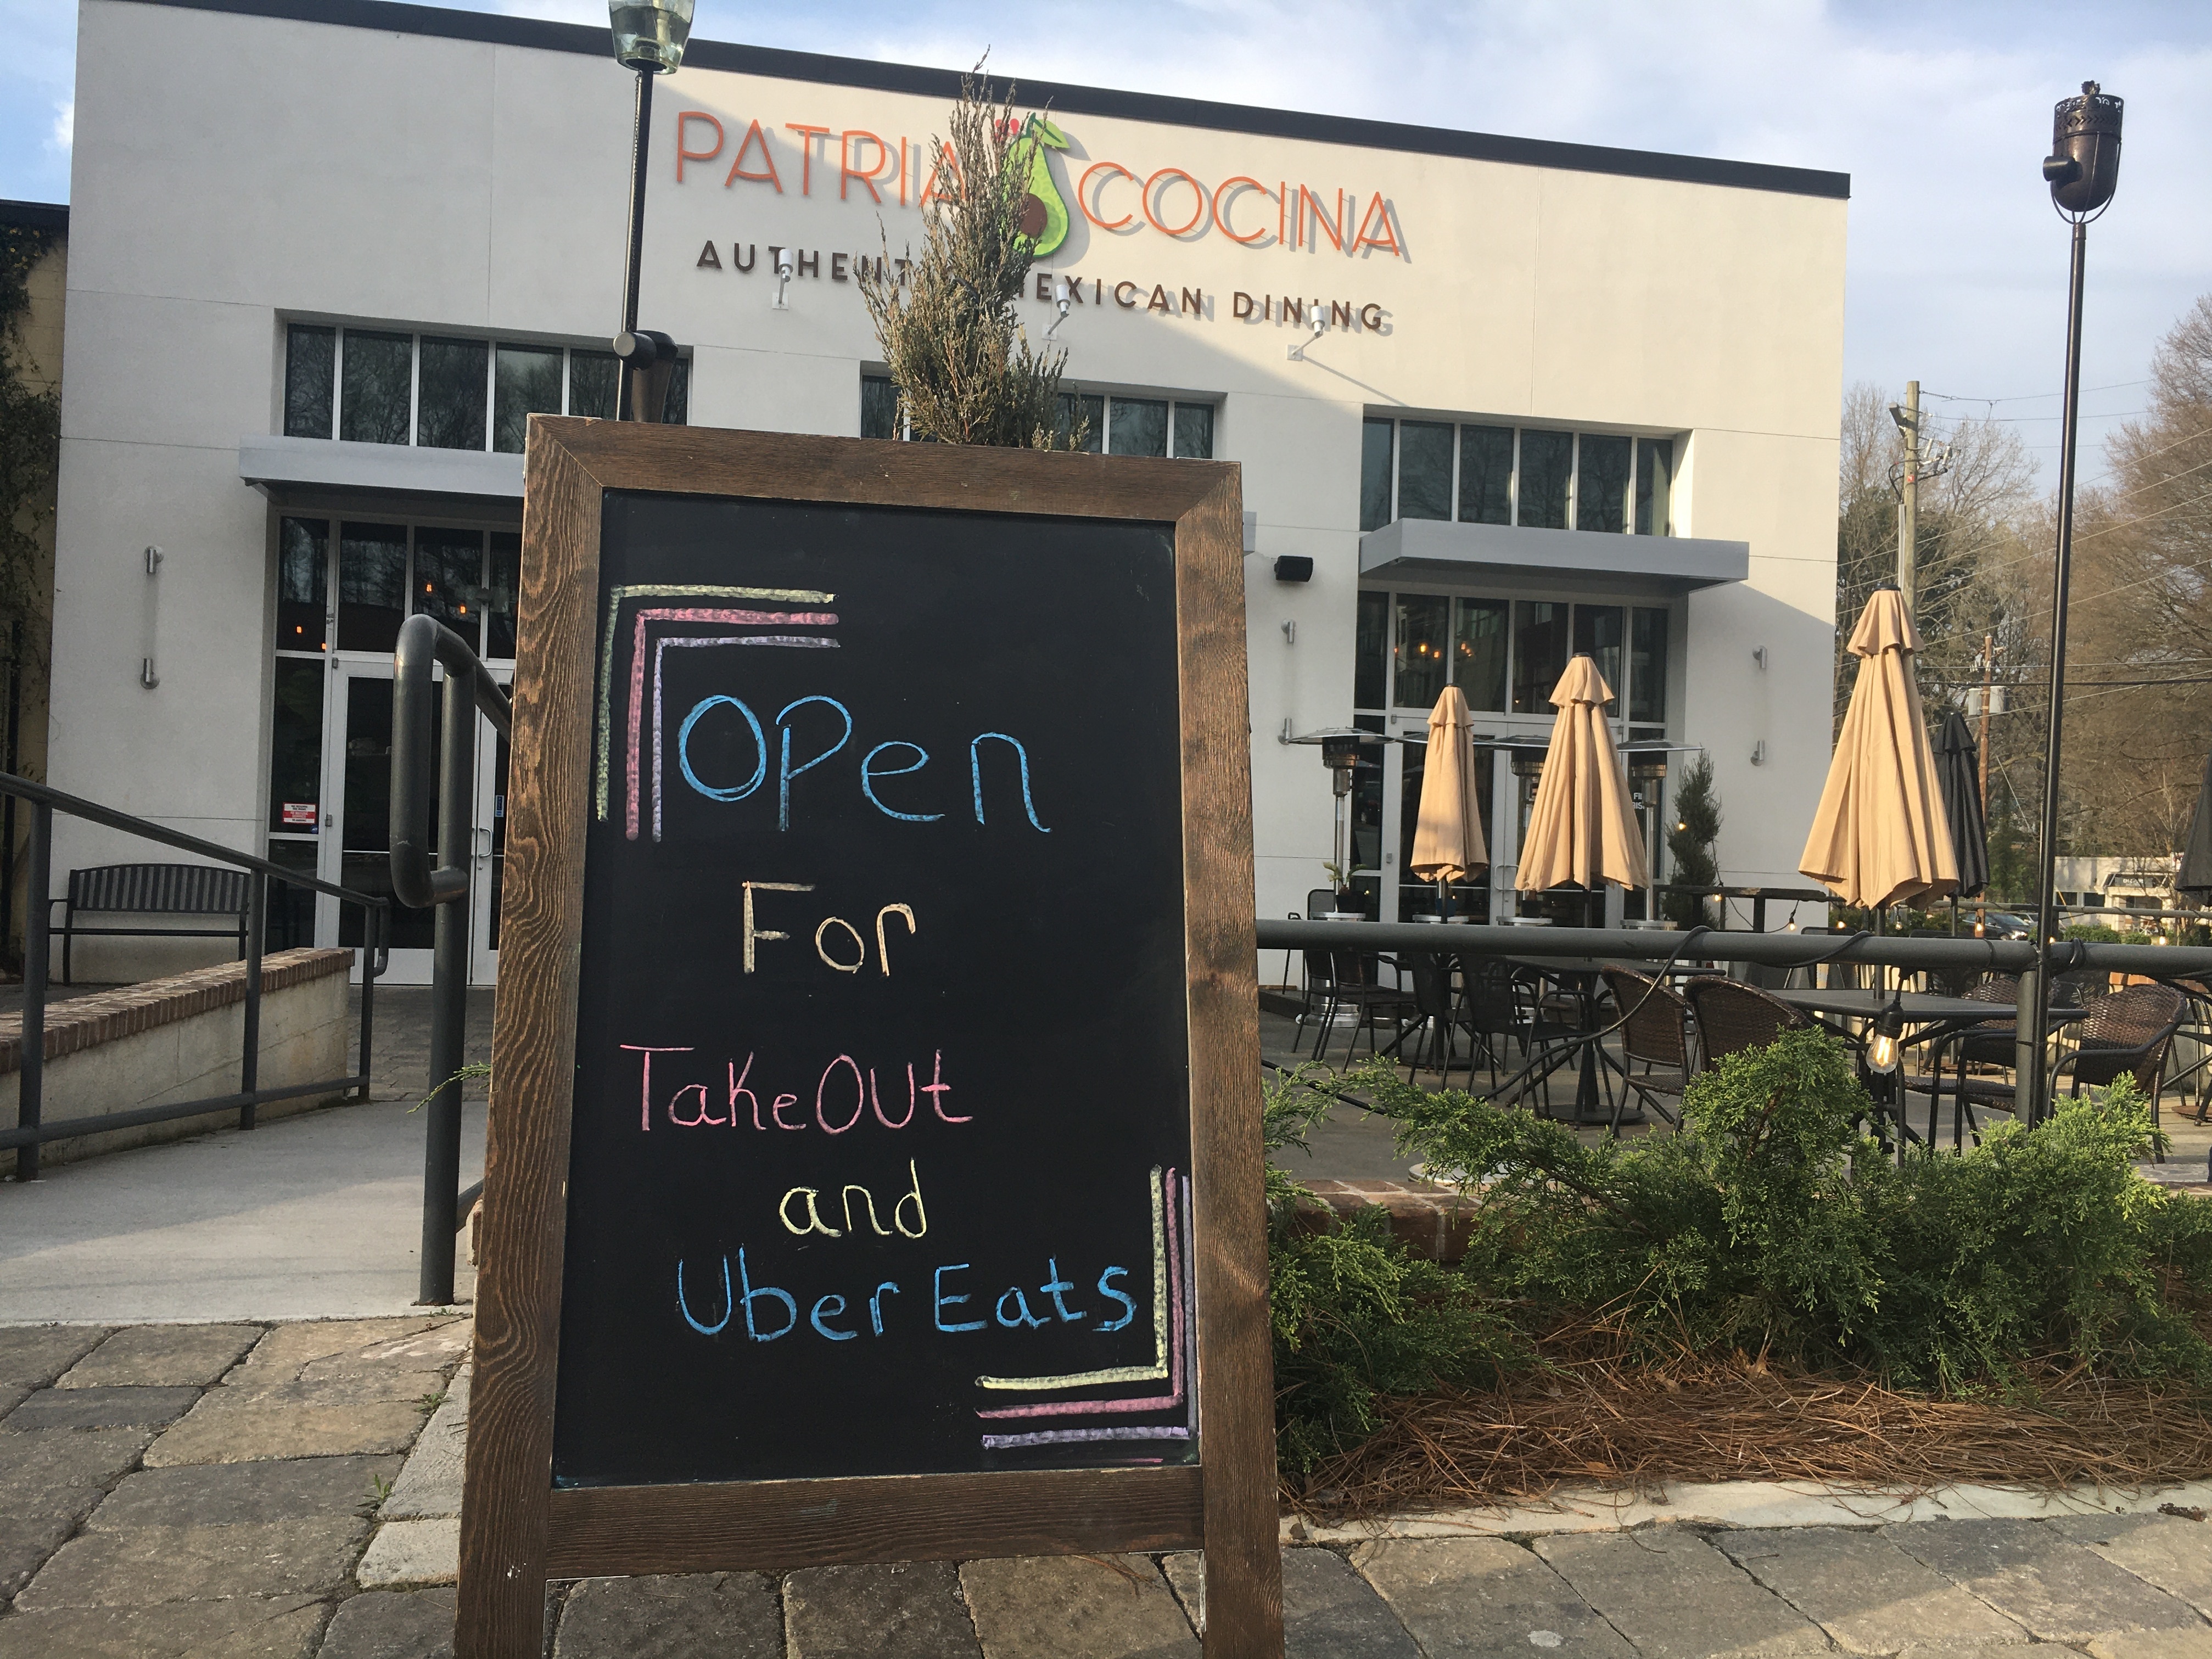 PATRIA COCINA
AUTHENTIC MEXICAN DINING
Open
For
TakeOut
and
Uber Eats